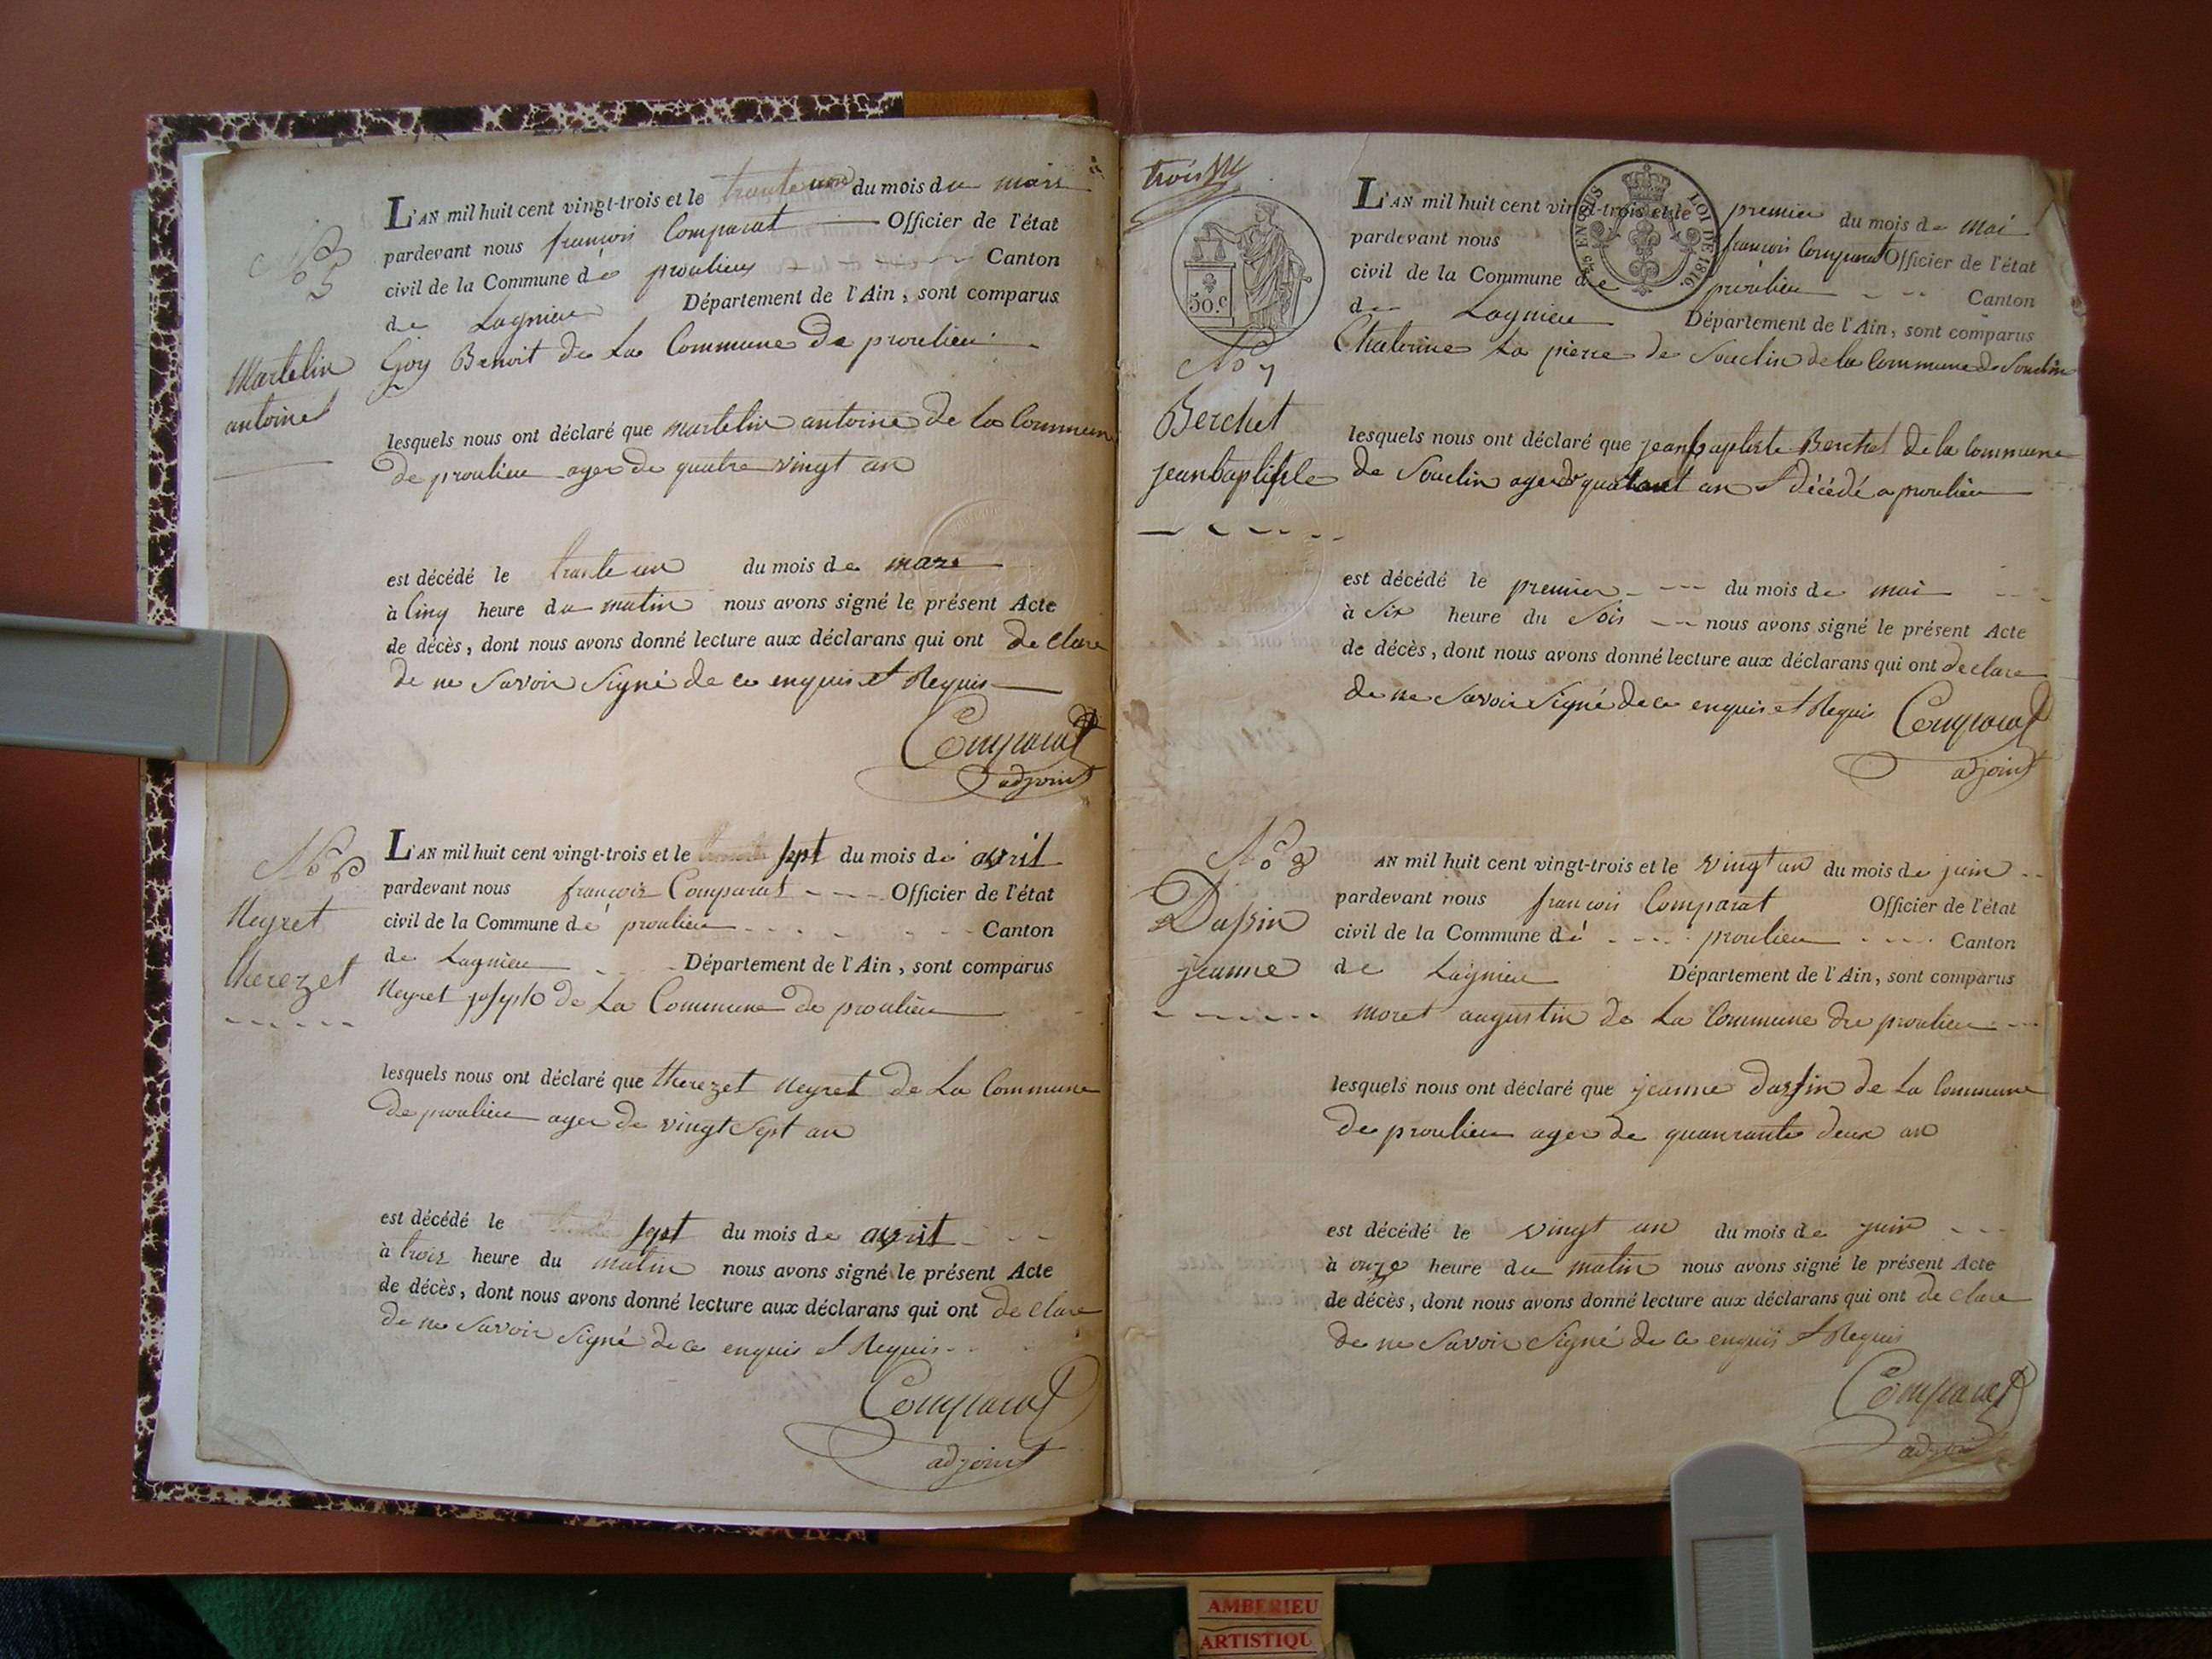 L'AN mil huit cent vingt-trois et le trante un du mois de mars
pardevant nous françois Comparat Officier de l'état
civil de la Commune de proulieu Canton
de Lagnieu Département de l'Ain, sont comparus
Goy Benoit de La Commune De proulieu
N° 5
Martelin
antoine
lesquels nous ont déclaré que martelin antoine de La Commune
de proulieu ager de quatre vingt an
est décédé le trante un du mois de mars
à Cinq heure du matin nous avons signé le présent Acte
de décès, dont nous avons donné lecture aux déclarans qui ont de Clare
de ne Savoir Signé de ce enquis et Requis
Comparat
adjoint
N° 6
Neyret
therezet
L'AN mil huit cent vingt-trois et le sept du mois de avril
pardevant nous françois Comparat Officier de l'état
civil de la Commune de proulieu Canton
de Lagnieu Département de l'Ain, sont comparus
Neyret joseph de La Commune de proulieu
lesquels nous ont déclaré que therezet Neyret de La Commune
de proulieu ager de vingt Sept an
est décédé le sept du mois de avril
à trois heure du matin nous avons signé le présent Acte
de décès, dont nous avons donné lecture aux déclarans qui ont de Clare
de ne Savoir Signé de ce enquis et Requis
Comparat
adjoint
trois
50.c
EN SUS
LOI DE 1816.
N° 7
Berchet
jean baptiste
L'AN mil huit cent vingt-trois et le premier du mois de mai
pardevant nous françois Comparat Officier de l'état
civil de la Commune de proulieu Canton
de Lagnieu Département de l'Ain, sont comparus
Chaterine La pierre de Souclin de la Commune de Souclin
lesquels nous ont déclaré que jean baptiste Berchet de la Commune
de Souclin ager de quatant an et décédé a proulieu
est décédé le premier du mois de mai
à Six heure du Soir nous avons signé le présent Acte
de décès, dont nous avons donné lecture aux déclarans qui ont declare
de ne Savoir Signé de ce enquis et Requis Comparat
adjoint
N° 8
Dassin
jeanne
AN mil huit cent vingt-trois et le vingt un du mois de juin
pardevant nous françois Comparat Officier de l'état
civil de la Commune de proulieu Canton
de Lagnieu Département de l'Ain, sont comparus
moret augustin de La Commune de proulieu
lesquels nous ont déclaré que jeanne dassin de La Commune
de proulieu ager de quanrante deux an
est décédé le vingt un du mois de juin
à onze heure du matin nous avons signé le présent Acte
de décès, dont nous avons donné lecture aux déclarans qui ont de Clare
de ne Savoir Signé de ce enquis et Requis
Comparat
adjoint
AMBERIEU
ARTISTIQU